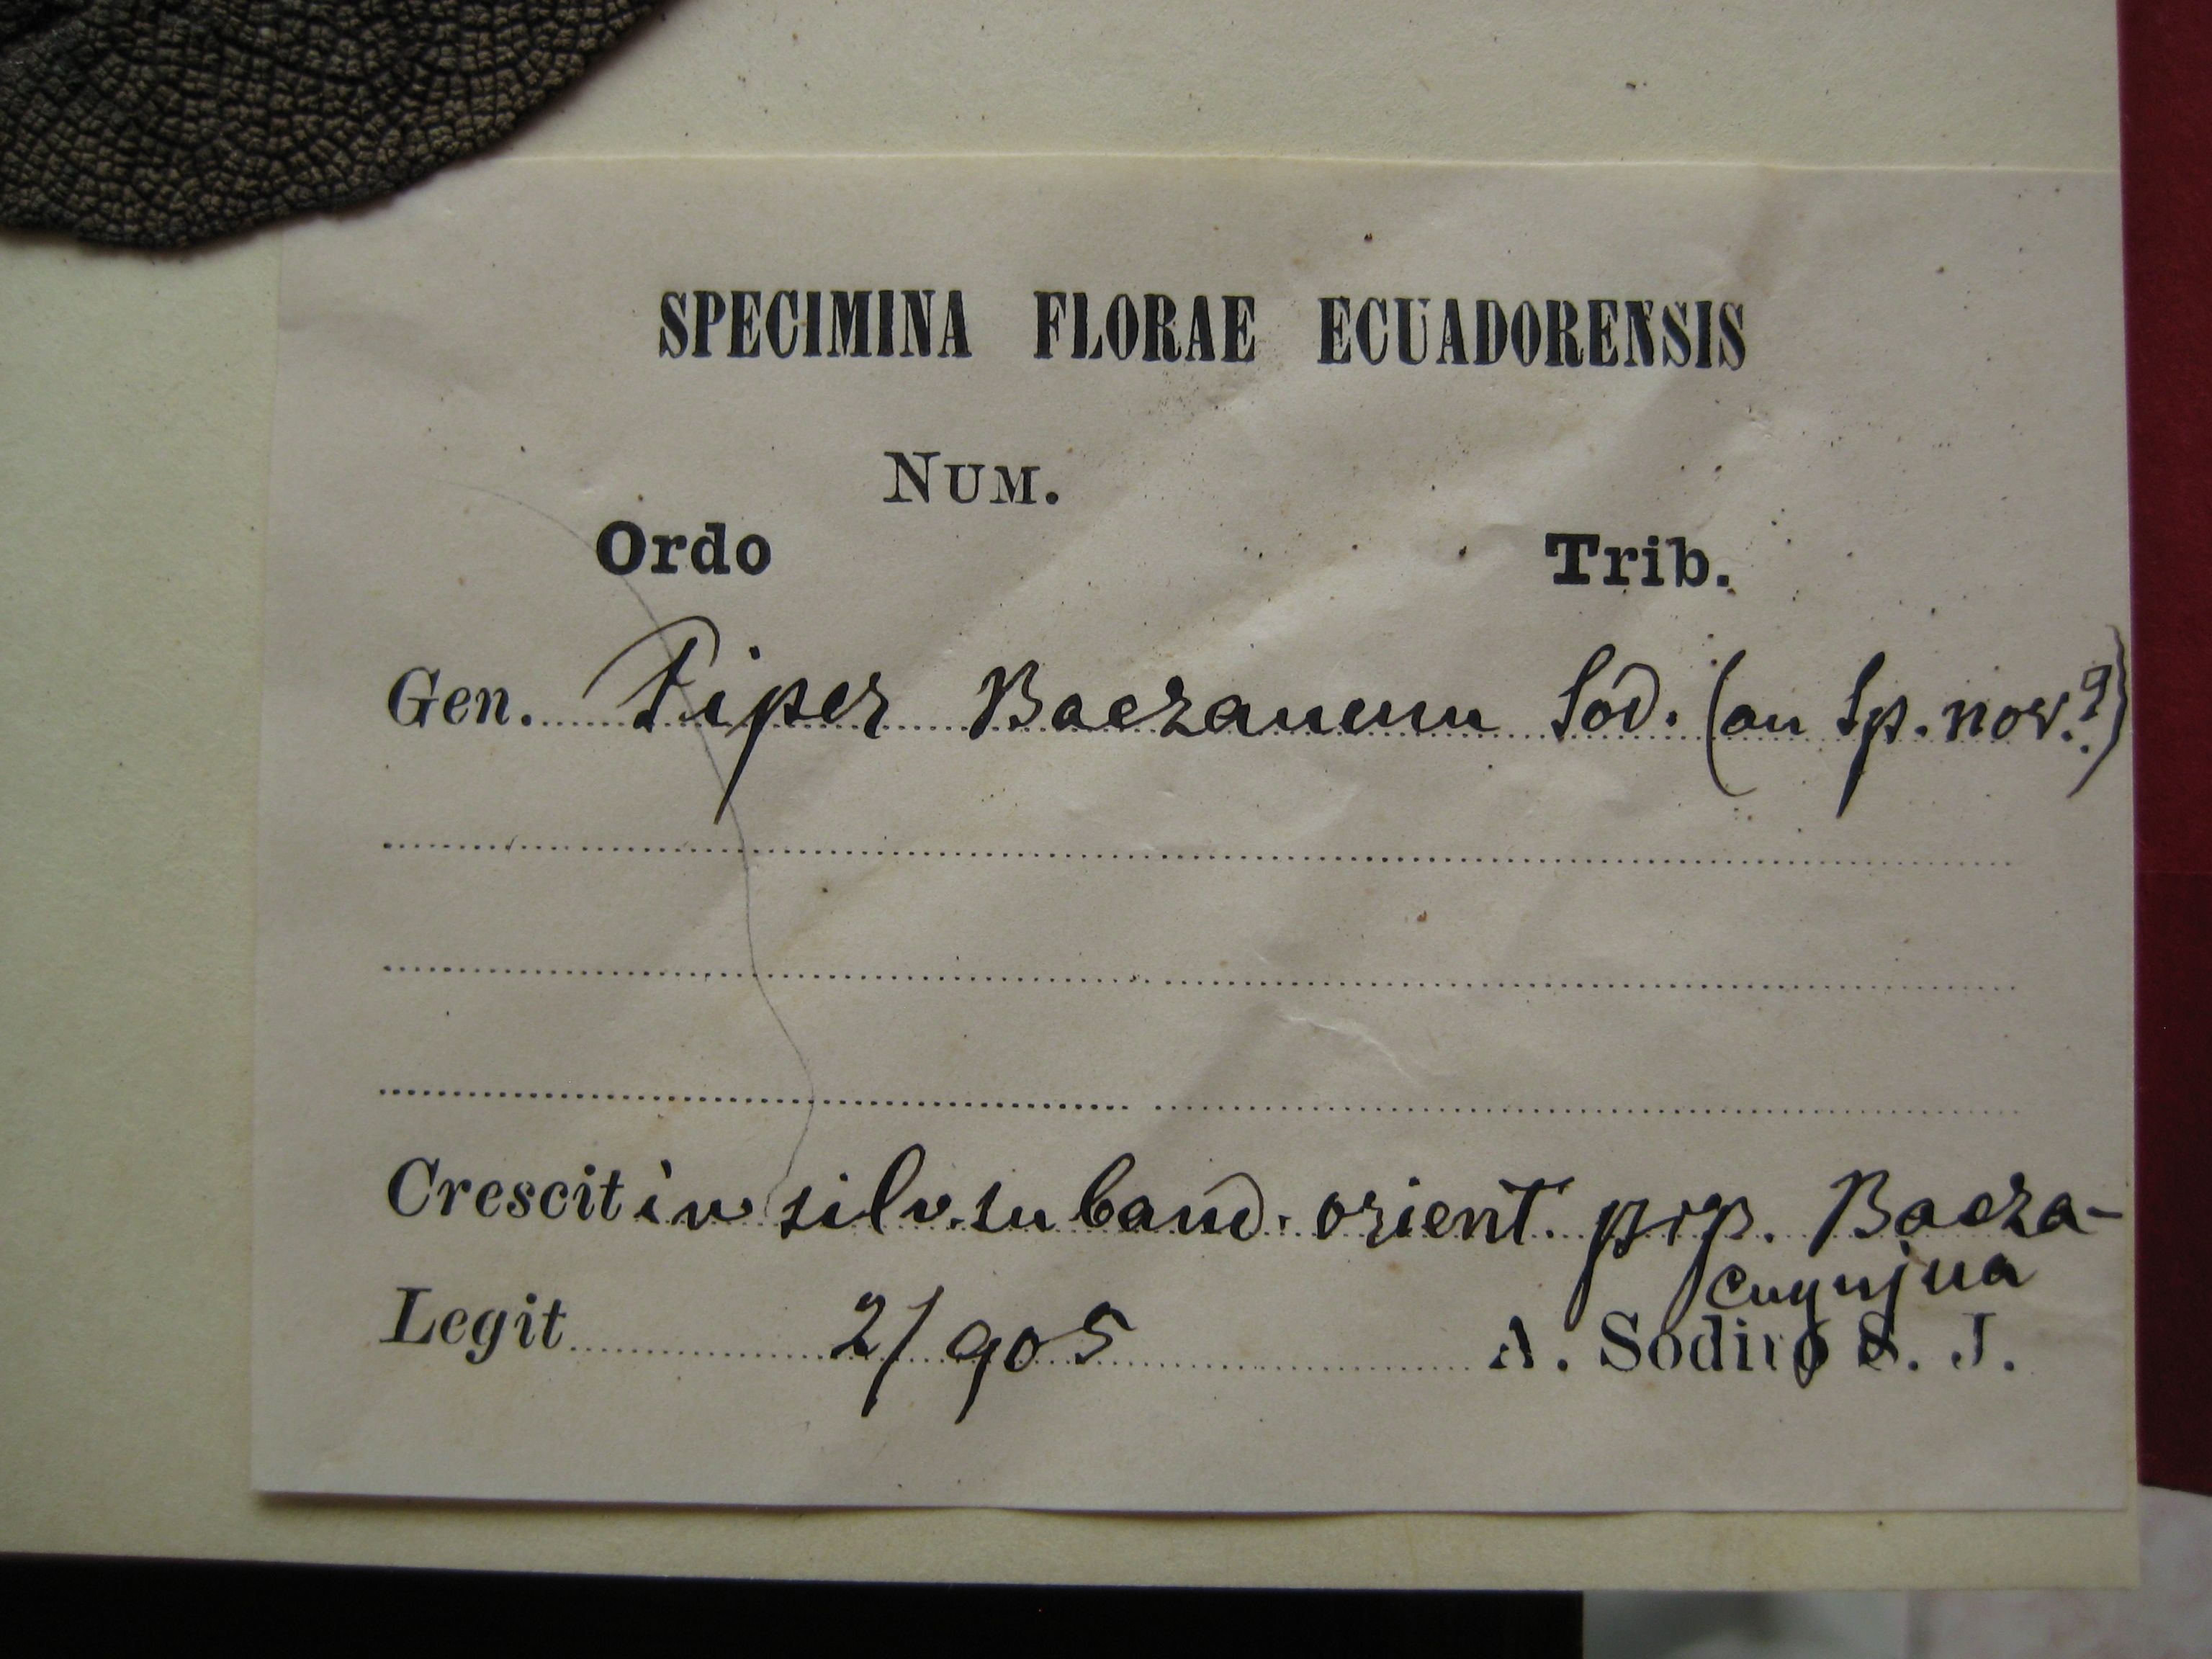 SPECIMINA FLORAE ECUADORENSIS
NUM.
Ordo Trib.
Gen. Piper Baezanum Sod. (an Sp. nov.?)
Crescit in silv. suband. orient. prp. Baeza-
Cuyujua
Legit 2/905 A. Sodiro S. J.